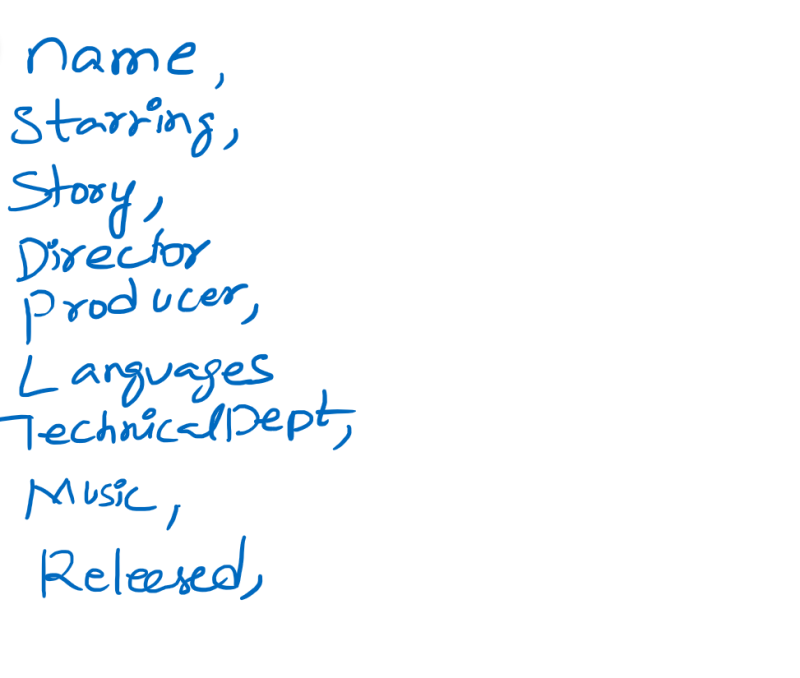 name,
Starring,
Story,
Director
Producer,
Languages
TechnicalDept,
Music,
Released,